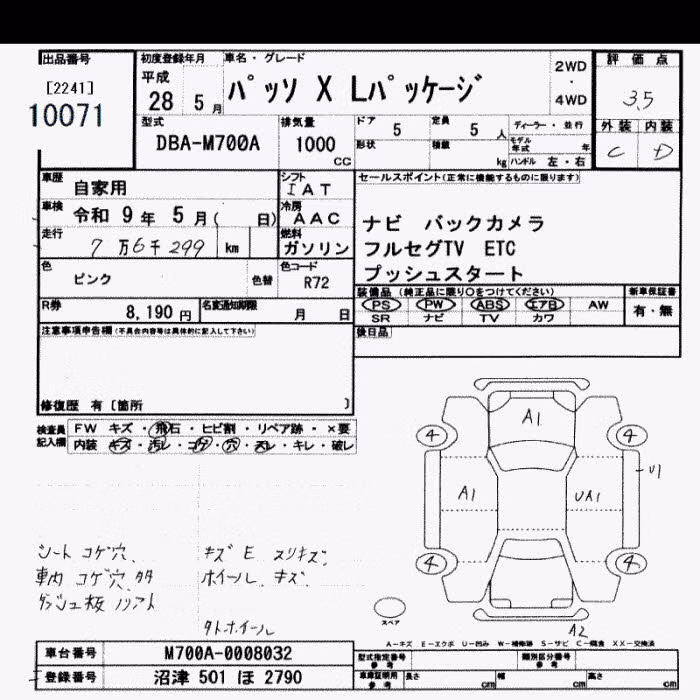 出品番号
[2241]
10071
初度登録年月
平成
28 5月
車名・グレード
パッソ X Lパッケージ
2WD
・
4WD
評価点
3.5
外装 内装
C D
型式
DBA-M700A
排気量
1000
CC
ドア
5
定員
5 人
形状
積載
kg
ディーラー・並行
モデル年式 年
ハンドル 左・右
車歴
自家用
車検
令和 9年 5月( 日)
走行
7万6千299 km
シフト
IAT
冷房
AAC
燃料
ガソリン
セールスポイント(正常に機能するものに限ります)
ナビ バックカメラ
フルセグTV ETC
プッシュスタート
色
ピンク
色替
色コード
R72
装備品 (純正品に限り○をつけてください)
PS PW ABS エアB AW
SR ナビ TV カワ
新車保証書
有・無
R券
8,190 円
名変通知期限
月 日
後日品
注意事項申告欄(不具合内容等は具体的に記入して下さい)
修復歴 有 [箇所 ]
検査員記入欄
FW キズ・飛石・ヒビ割・リペア跡・×要
内装 キズ・汚レ・コゲ・穴・スレ・キレ・破レ
A1
4 4
A1 UA1
U1
4 4
スペア
A2
シート コゲ穴、
車内 コゲ穴、タタ
ダッシュ板 ノリアト
キズE スリキズ、
ホイール キズ
タトホイール
A-キズ E-エクボ U-凹み W-補修跡 S-サビ C-腐食 XX-交換済
車台番号
M700A-0008032
登録番号
沼津 501 ほ 2790
型式指定番号
参考
類別区分番号
参考
車庫証明用
参考
長さ cm
幅 cm
高さ cm